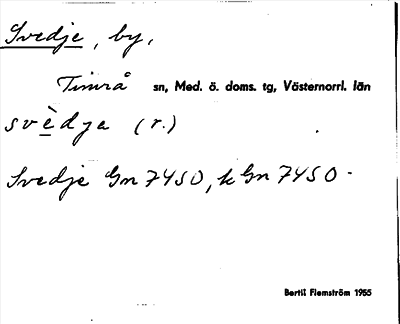 Svedje, by,
Timrå sn, Med. ö. doms. tg, Västernorrl. län
svèdja (r.)
Svedje Gn 7450, k Gn 7450.
Bertil Flemström 1955